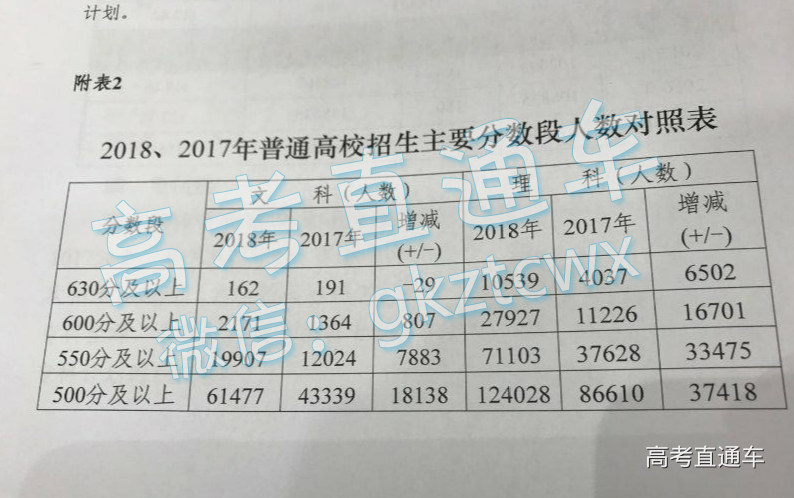 计划。
附表2
2018、2017年普通高校招生主要分数段人数对照表
分数段 文 科（人数） 理 科（人数）
2018年 2017年 增减(+/−) 2018年 2017年 增减(+/−)
630分及以上 162 191 -29 10539 4037 6502
600分及以上 2171 1364 807 27927 11226 16701
550分及以上 19907 12024 7883 71103 37628 33475
500分及以上 61477 43339 18138 124028 86610 37418
高考直通车
微信：gkztcwx
高考直通车